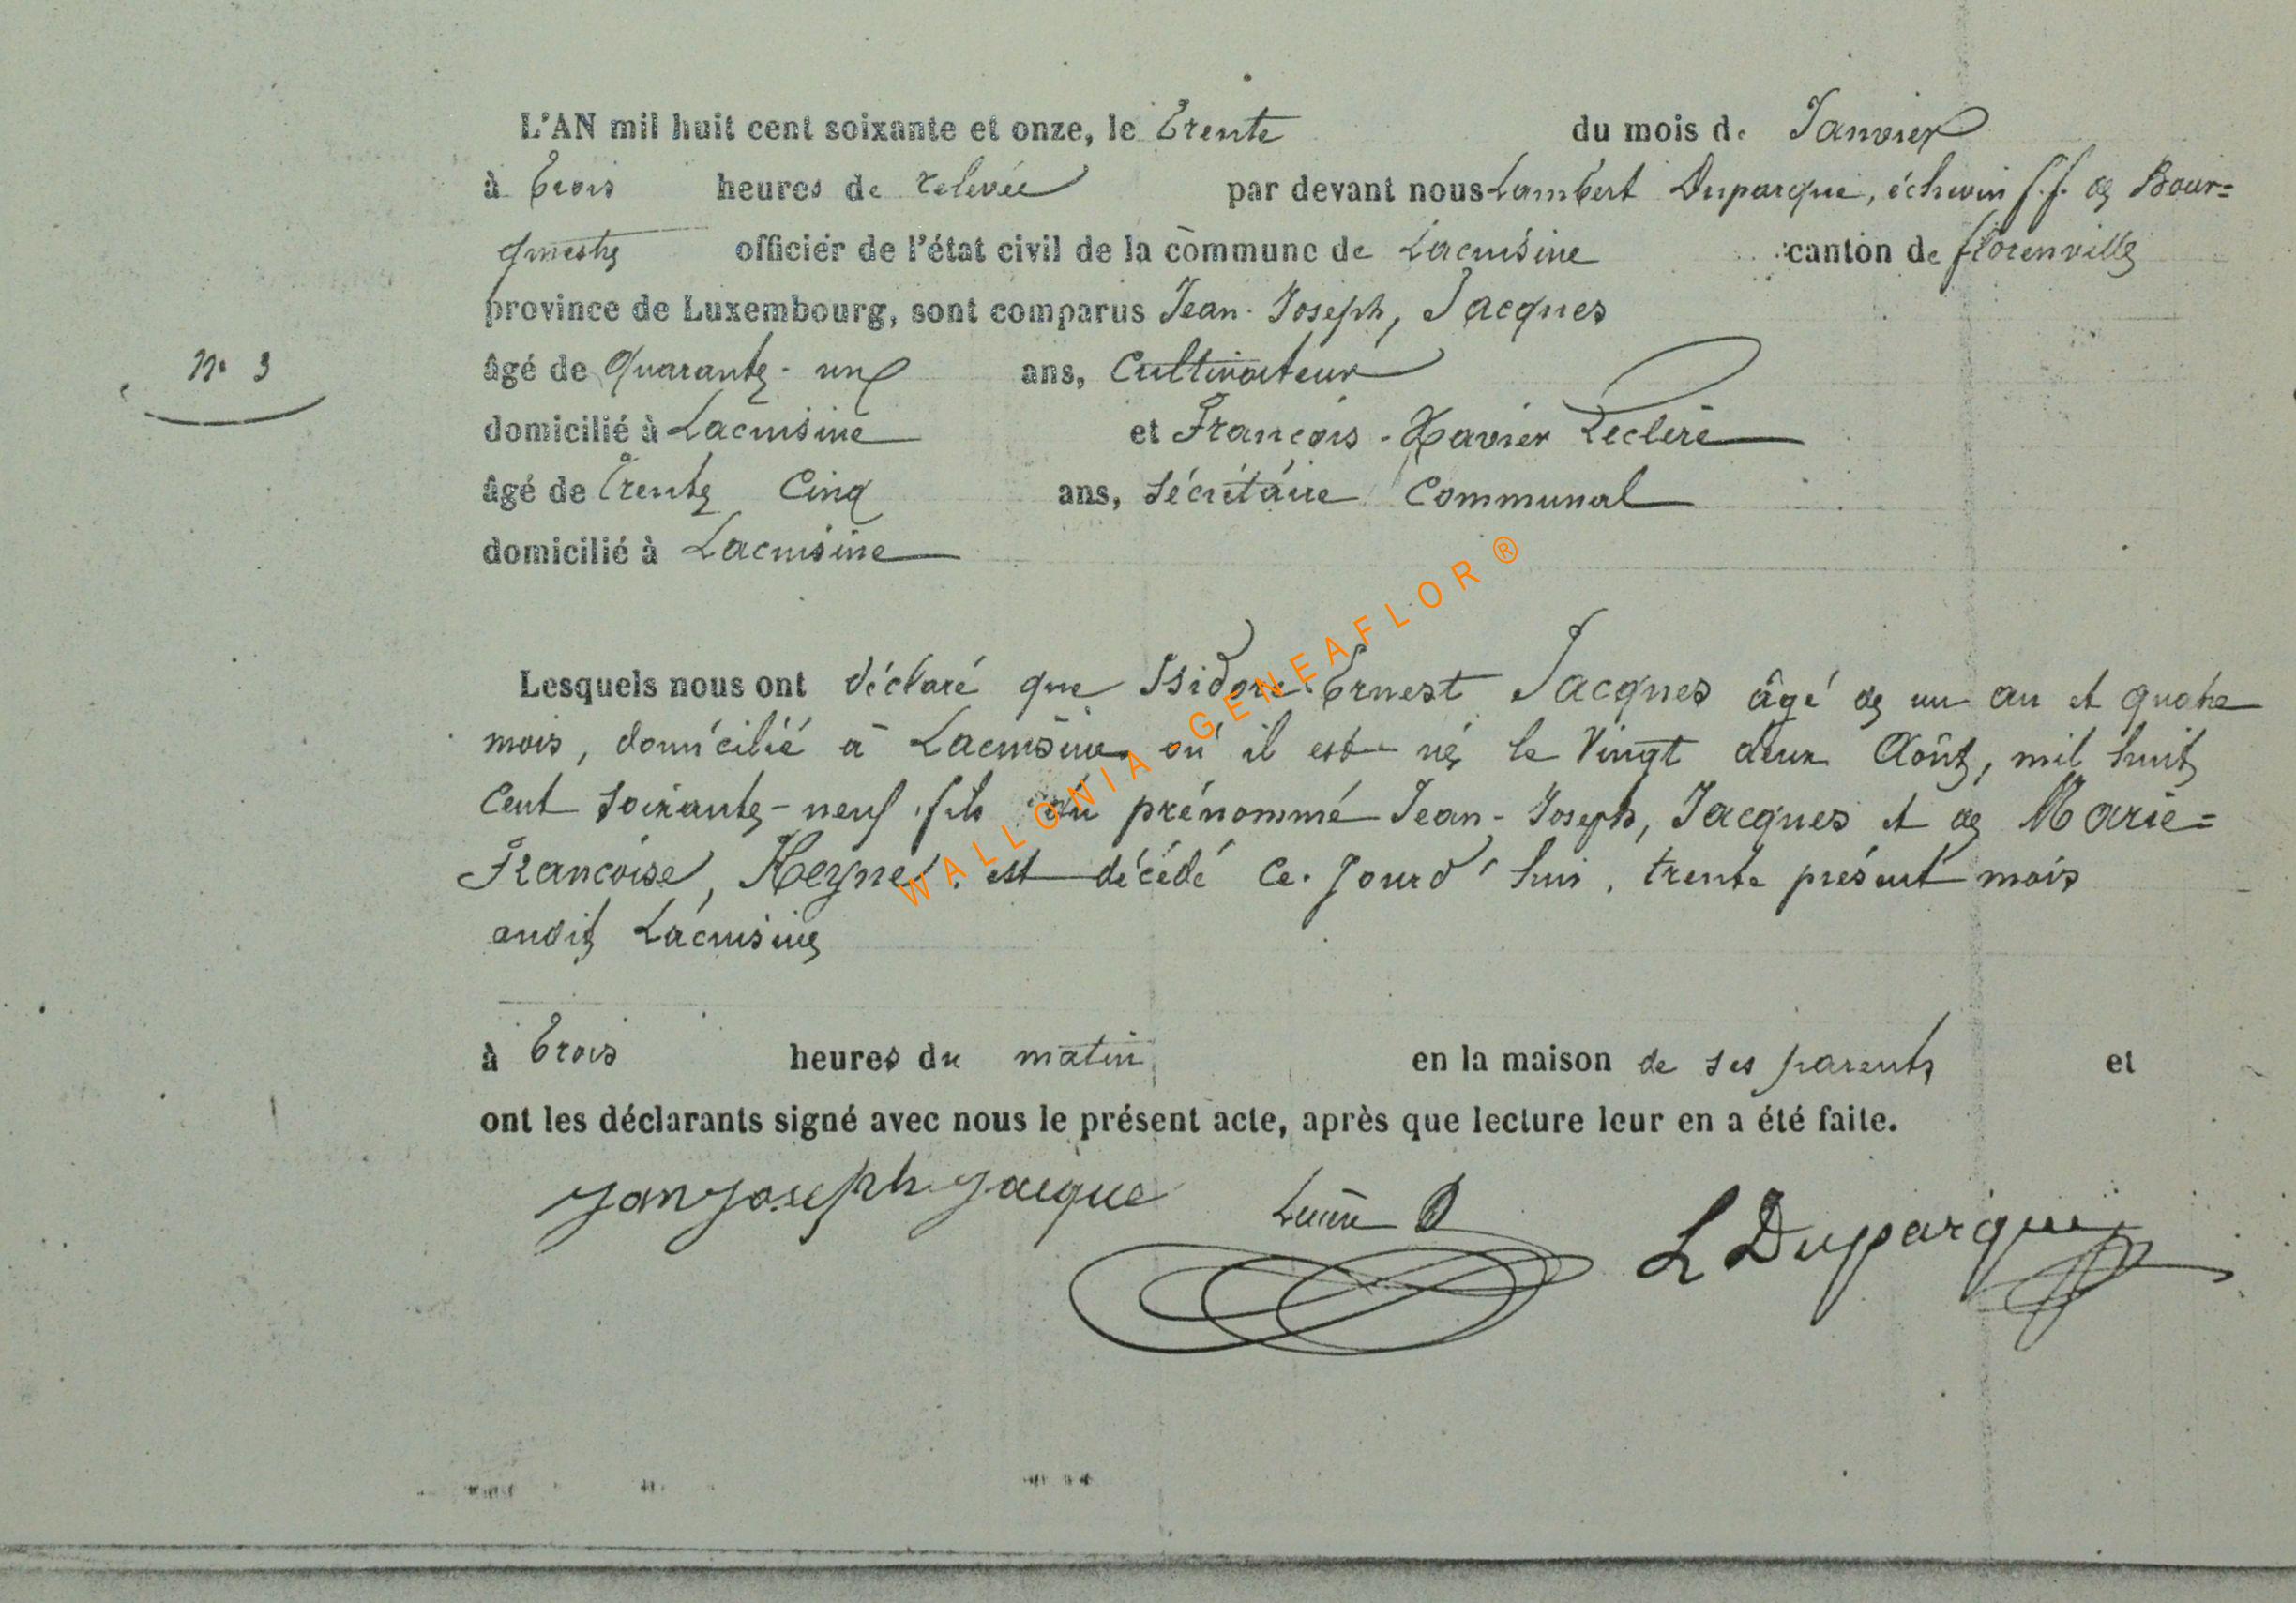 L'AN mil huit cent soixante et onze, le Trente du mois de Janvier
à Trois heures de relevée par devant nous Lambert Duparque, échevin f.f. de Bour=
gmestre officier de l'état civil de la commune de Lacuisine canton de florenville
province de Luxembourg, sont comparus Jean-Joseph, Jacques
N° 3
âgé de Quarante-un ans, Cultivateur
domicilié à Lacuisine et François-Xavier Leclère
âgé de Trente Cinq ans, Sécrétaire Communal
domicilié à Lacuisine
Lesquels nous ont déclaré que Isidore-Ernest Jacques âgé de un an et quatre
mois, domicilié à Lacuisine où il est né le Vingt deux Août, mil huit
Cent soixante-neuf, fils du prénommé Jean-Joseph, Jacques et de Marie=
Françoise, est décédé ce jourd'hui, trente présent mois
audit Lacuisine
à Trois heures du matin en la maison de ses parents et
ont les déclarants signé avec nous le présent acte, après que lecture leur en a été faite.
Jan Joseph Jacque
L Duparque
WALLONIA GENEAFLOR ®